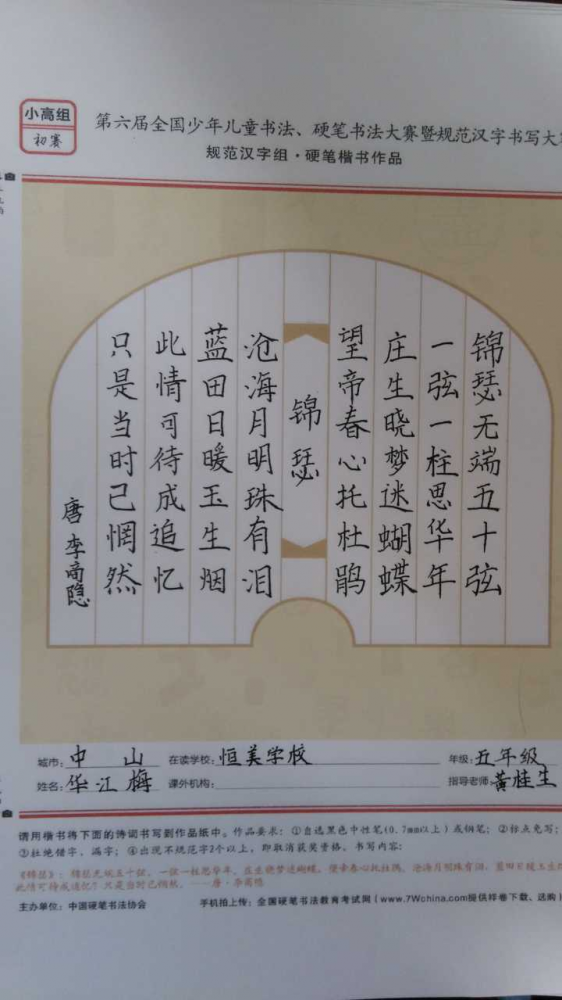 小高组
初赛
第六届全国少年儿童书法、硬笔书法大赛暨规范汉字书写大
规范汉字组·硬笔楷书作品
锦瑟无端五十弦
一弦一柱思华年
庄生晓梦迷蝴蝶
望帝春心托杜鹃
锦瑟
沧海月明珠有泪
蓝田日暖玉生烟
此情可待成追忆
只是当时已惘然
唐 李商隐
城市：中山 在读学校：恒美学校 年级：五年级
姓名：华江梅 课外机构： 指导老师：黄桂生
请用楷书将下面的诗词书写到作品纸中。作品要求：①自选黑色中性笔(0.7mm以上)或钢笔；②标点免写；
③杜绝错字、漏字；④出现不规范字2个以上，即取消获奖资格。书写内容：
《锦瑟》：锦瑟无端五十弦，一弦一柱思华年。庄生晓梦迷蝴蝶，望帝春心托杜鹃。沧海月明珠有泪，蓝田日暖玉生
此情可待成追忆？只是当时已惘然。——唐·李商隐
主办单位：中国硬笔书法协会 手机拍上传：全国硬笔书法教育考试网(www.7Wchina.com提供样卷下载、选购)